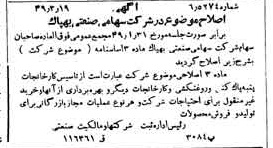 شماره ۲۷۴ ث ر۱ آگهی ۴۹/۳/۱۹
اصلاح موضوع در شرکت سهامی صنعتی بهپاك
برابر صورت جلسه مورخ ۴۹/۱/۳۱ مجمع عمومی فوق العاده صاحبان
سهام شرکت سهامی صنعتی بهپاك ماده ۳ اساسنامه ( موضوع شرکت ) بشرح زیر اصلاح گردید
ماده ۳ اصلاحی موضوع شرکت عبارت است از تاسیس کارخانجات
پنبه پاك کنی ، روغنکشی و کارخانجات دیگر و بهره برداری از آنها خواه منقول
غیر منقول برای احتیاجات شرکت و هر نوع عملیات مجاز بازرگانی برای
تولید و فروش محصولات
رئیس اداره ثبت شرکتها و مالکیت صنعتی
پ ۳۰۸۴ ق ۱۱۶۳۶۱